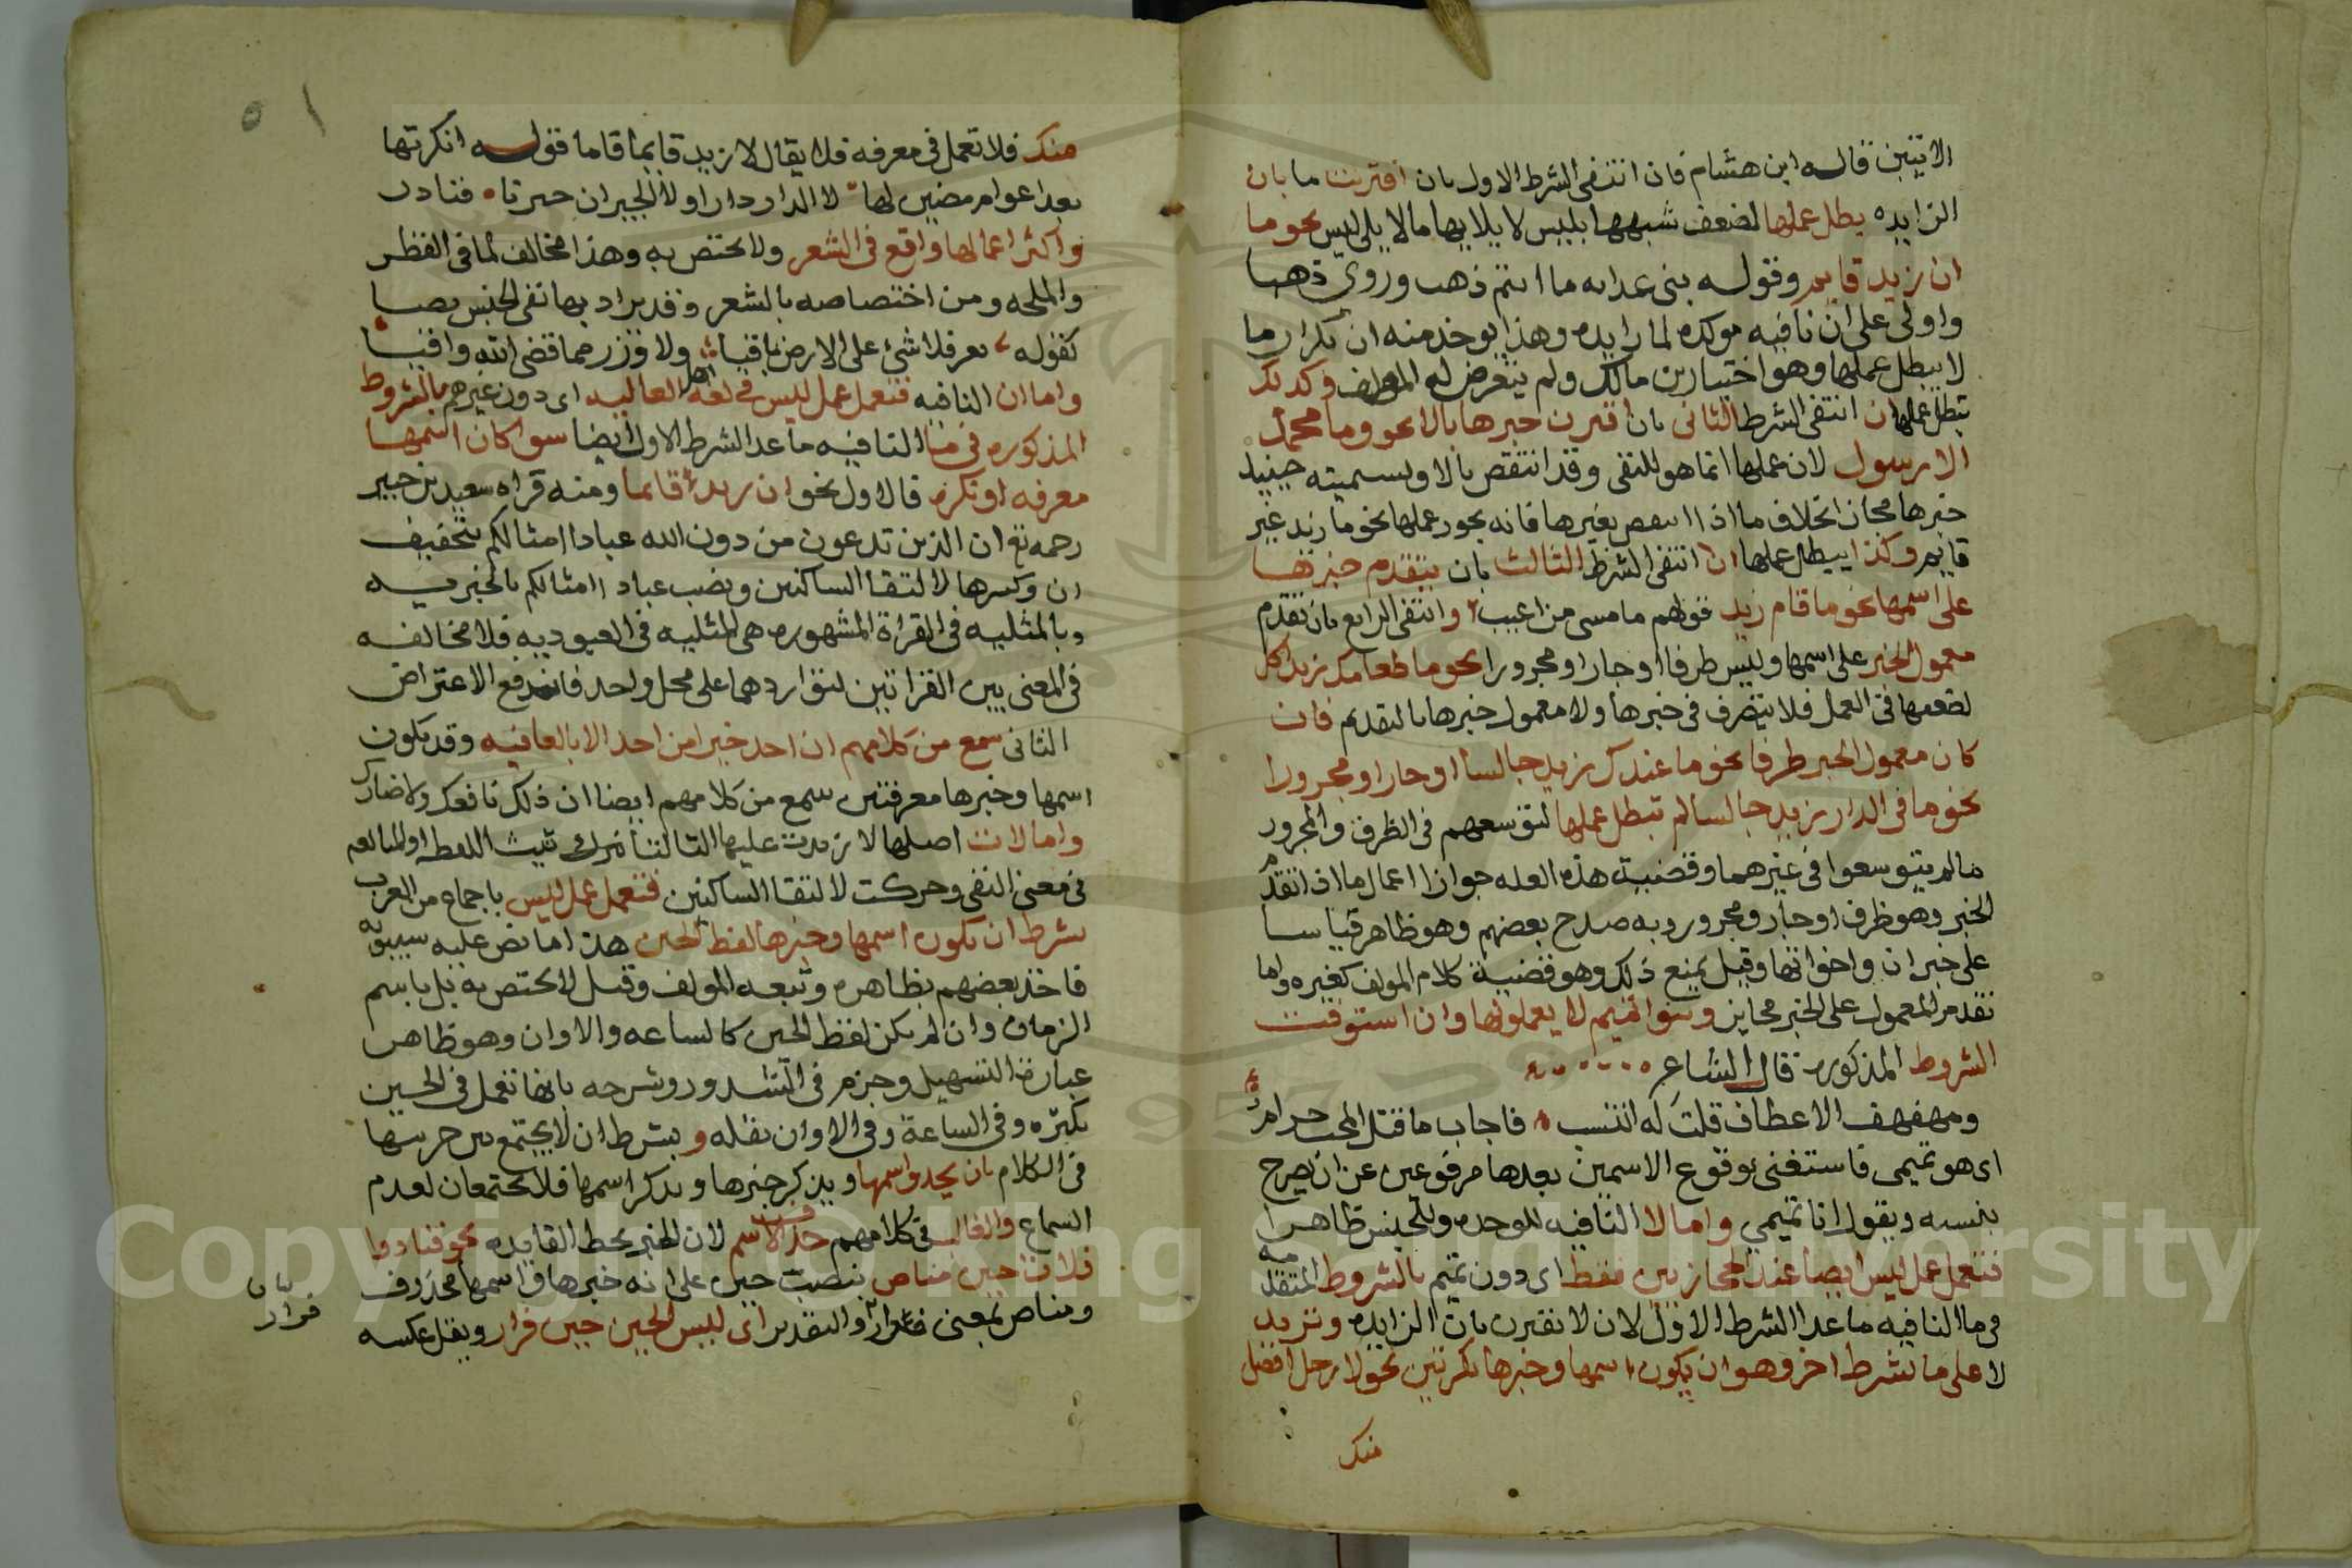 الاتيتين قاله ابن هشام فان انتفى الشرط الاول بان اقترنت ما بان
الزايده بطل عملها لضعف شبهها بليس لا يلايها مالا يلى ليس نحو ما
ان زيد قايم وقوله بنى غدانه ما ان انتم ذهب وروى ذهبا
واولى على ان نافيه موكده لما لا زايده وهذا يوخذ منه ان تكرار ما
لا يبطل عملها وهو اختيار بن مالك ولم يتعرض له المولف وكذلك
تبطل عملها ان انتفى الشرط الثانى بان اقترن خبرها بالا نحو وما محمد
الا رسول لان عملها انما هو للنفى وقد انتقض بالا وتسميته حينيد
خبرها مجاز بخلاف ما اذا انتقض بغيرها فانه يجوز عملها نحو ما زيد غير
قايم وكذا يبطل عملها ان انتفى الشرط الثالث بان يتقدم خبرها
على اسمها نحو ما قام زيد قولهم ما مسى من اعتب وانتفى الرابع بان تقدم
معمول الخبر على اسمها وليس ظرفا او جارا ومجرورا نحو ما طعامك زيد اكل
لضعفها فى العمل فلا يتصرف فى خبرها ولا معمول خبرها بالتقديم فان
كان معمول الخبر ظرفا نحو ما عندك زيد جالسا او جارا ومجرورا
نحو ما فى الدار زيد جالسا لم تبطل عملها لتوسعهم فى الظرف والمجرور
مالم يتوسعوا فى غيرهما وقضية هذه العله جواز اعمال ما اذا تقدم
الخبر وهو ظرف او جار ومجرور وبه صرح بعضهم وهو ظاهر قياسا
على خبر ان واخواتها وقيل يمنع ذلك وهو قضية كلام المولف كغيره واما
تقدم المعمول على الخبر فجايز وبنوا تميم لا يعملونها وان استوفت
الشروط المذكوره قال الشاعر
ومهفهف الاعطاف قلت له انتسب فاجاب ما قتل المحب حرام
اى هو تميمى فاستغنى بوقوع الاسمين بعدها مرفوعين عن ان يصرح
بنسبه ويقول انا تميمي واما لا النافيه للوحده وللجنس ظاهرا
فتعمل عمل ليس ايضا عند الحجازيين فقط اى دون تميم بالشروط المتقدمه
فى ما النافيه ما عدا الشرط الاول لان لا تقترن بان الزايده وتزيد
لا على ما بشرط اخر وهو ان يكون اسمها وخبرها نكرتين نحو لا رجل افضل
منك
منك فلا تعمل فى معرفه فلا يقال لا زيد قايما فاما قوله انكرتها
بعد اعوام مضين لها لا الدار دارا ولا الجيران جيرانا فنادر
واكثر اعمالها واقع فى الشعر ولا يختص به وهذا مخالف لما فى القطر
والملحه ومن اختصاصه بالشعر وقد يراد بها نفى الجنس نصا
كقوله تعز فلا شئ على الارض باقيا ولا وزر مما قضى الله واقيا
واما ان النافيه فتعمل عمل ليس فى لغة اهل العاليه اى دون غيرهم بالشروط
المذكوره فى ما النافيه ما عدا الشرط الاول ايضا سوا كان اسمها
معرفه او نكره فالاول نحو ان زيد قائما ومنه قراه سعيد بن جبير
رحمه تع ان الذين تدعون من دون الله عبادا امثالكم بتخفيف
ان وكسرها لالتقا الساكنين ونصب عبادا امثالكم بالخبريه
وبالمثليه فى القراة المشهوره هى المثليه فى العبوديه فلا مخالفه
فى المعنى بين القراتين لتواردهما على محل واحد فاندفع الاعتراض
الثانى سمع من كلامهم ان احد خيرا من احد الا بالعافيه وقد يكون
اسمها وخبرها معرفتين سمع من كلامهم ايضا ان ذلك نافعك ولا ضارك
واما لات اصلها لا زيدت عليها التا لتانيث اللفظه او للمبالغه
فى معنى النفى وحركت لالتقا الساكنين فتعمل عمل ليس باجماع من العرب
بشرط ان يكون اسمها وخبرها لفظ الحين هذا ما نص عليه سيبويه
فاخذ بعضهم بظاهره وتبعه المولف وقيل لا يختص به بل باسم
الزمان وان لم يكن لفظ الحين كالساعه والاوان وهو ظاهر
عبارة التسهيل وجزم فى الشذور وشرحه بانها تعمل فى الحين
بكثره وفى الساعة وفى الاوان بقله وبشرط ان لا يجتمع بين جزيها
فى الكلام بان يحذف اسمها ويذكر خبرها ويذكر اسمها فلا يجتمعان لعدم
السماع والغالب فى كلامهم حذف الاسم لان الخبر محط الفايده نحو فنادوا
فلات حين مناص بنصب حين على انه خبرها واسمها محذوف
ومناص بمعنى فرار والتقدير اى ليس الحين حين فرار ويقل عكسه
بان
فرار